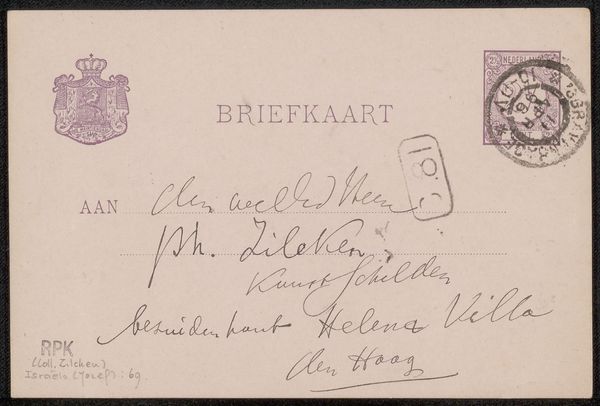 BRIEFKAART
2½
NEDERLAND
'S GRAVENHAGE
18 C
AAN
den
Ph. Zilcken
Kunst Schilder
bezuidenhout Helena Villa
den Haag
RPK
(coll. Zilcken)
Israels (Jozef) : 69